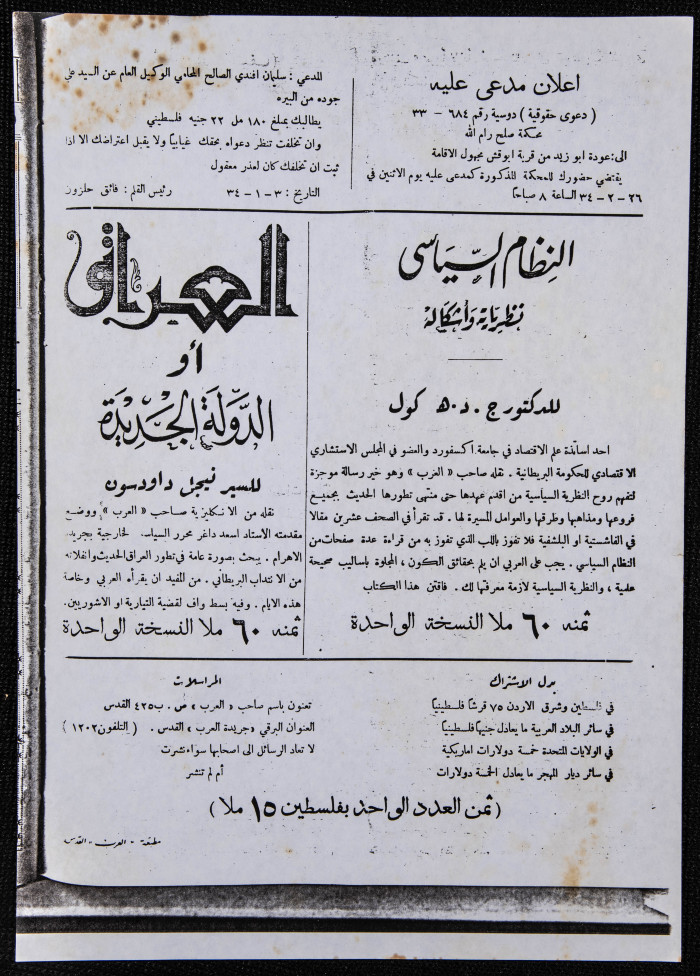 اعلان مدعى عليه
( دعوى حقوقية ) دوسية رقم ٦٨٤ - ٣٣
محكمة صلح رام الله
الى: عودة ابو زيد من قرية ابوقش مجهول الاقامة
يقتضي حضورك للمحكمة المذكورة كمدعى عليه يوم الاثنين في
٢٦-٢-٣٤ الساعة ٨ صباحا
المدعي : سليمان افندي الصالح المحامي الوكيل العام عن السيد علي
جوده من البيره
يطالبك بمبلغ ١٨٠ مل ٢٢ جنيه فلسطيني
وان تخلفت تنظر دعواه بحقك غيابيا ولا يقبل اعتراضك الا اذا
ثبت ان تخلفك كان لعذر معقول
التاريخ : ٣-١-٣٤ رئيس القلم : فائق حلزون
النظام السياسي
نظرياته وأشكاله
للدكتور ج . د . ه كول
احد اساتذة علم الاقتصاد في جامعة اكسفورد والعضو في المجلس الاستشاري
الاقتصادي للحكومة البريطانية . نقله صاحب « العرب » وهو خير رسالة موجزة
لتفهم روح النظرية السياسية من اقدم عهدها حتى منتهى تطورها الحديث بجميع
فروعها ومذاهبها وطرقها والعوامل المسيرة لها . قد تقرأ في الصحف عشرين مقالا
في الفاشستية او البلشفية فلا تفوز باللب الذي تفوز به من قراءة عدة صفحات من
النظام السياسي . يجب على العربي ان يلم بحقائق الكون ، المجلوة باساليب صحيحة
علمية ، والنظرية السياسية لازمة معرفتها لك . فاقتن هذا الكتاب
ثمنه ٦٠ ملا النسخة الواحدة
العراق
أو
الدولة الجديدة
للسير نيجل داودسون
نقله من الانكليزية صاحب « العرب » ووضع
مقدمته الاستاذ اسعد داغر محرر السياسة الخارجية بجريدة
الاهرام . يبحث بصورة عامة في تطور العراق الحديث وانفلاته
من الانتداب البريطاني . من المفيد ان يقرأه العربي وخاصة
هذه الايام . وفيه بسط واف لقضية التيارية او الاشوريين .
ثمنه ٦٠ ملا النسخة الواحدة
بدل الاشتراك
في فلسطين وشرق الاردن ٧٥ قرشا فلسطينيا
في سائر البلاد العربية ما يعادل جنيها فلسطينيا
في الولايات المتحدة خمسة دولارات اماريكية
في سائر ديار المهجر ما يعادل الخمسة دولارات
المراسلات
تعنون باسم صاحب « العرب » ص . ب ٤٢٥ القدس
العنوان البرقي « جريدة العرب » القدس . ( التلفون ١٢٠٢ )
لا تعاد الرسائل الى اصحابها سواء نشرت
أم لم تنشر
( ثمن العدد الواحد بفلسطين ١٥ ملا )
مطبعة - العرب - القدس